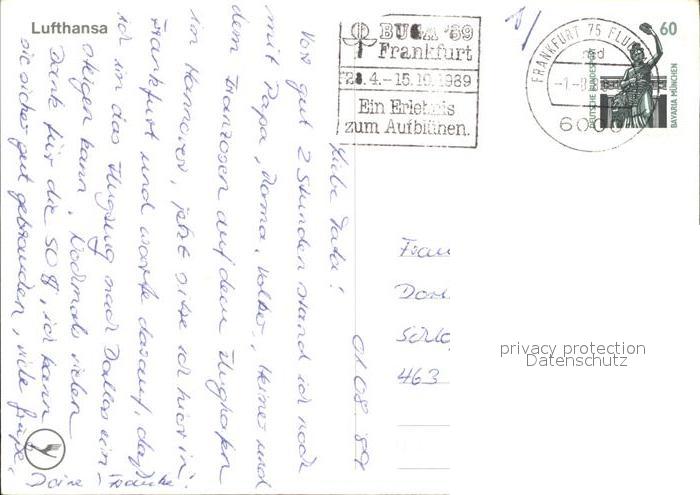 Lufthansa
BUGA '89
Frankfurt
28.4.-15.10.1989
Ein Erlebnis
zum Aufblühen.
FRANKFURT 75 FLUG
md
-1.-8.
6000
60
DEUTSCHE BUNDES
BAVARIA MÜNCHEN
01.08.89
Liebe
Vor gut 2 Stunden stand ich noch
mit Papa, Mama, Volker, Heiner und
dem Franzosen auf dem Flughafen
in Hannover, jetzt sitze ich hier in
Frankfurt und warte darauf, daß
ich in das Flugzeug nach Dallas ein-
steigen kann. Nochmals vielen
Dank für die 50 $, ich kann
sie sicher gut gebrauchen, viele Grüße,
Deine
Frau
463
privacy protection
Datenschutz